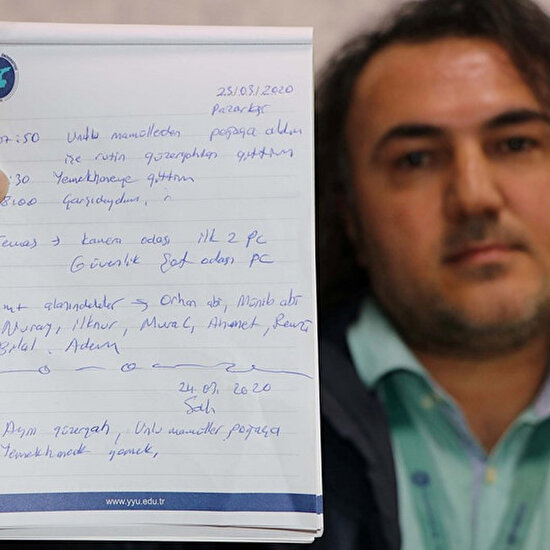 23.03.2020
Pazartesi
07:50 Unlu mamülleden poğaça aldım
ise rutin güzergahtan gittim
:30 Yemekhaneye gittim
8:00 Çarşıdaydım,
Temas → kamera odası ilk 2 PC
Güvenlik Şef odası PC
alanındakiler → Orhan abi, Münib abi
Nuray, İlknur, Murat, Ahmet,
Bilal, Adem
24.03.2020
Salı
Aynı güzergah, Unlu mamüller poğaça
Yemekhanede yemek,
www.yyu.edu.tr